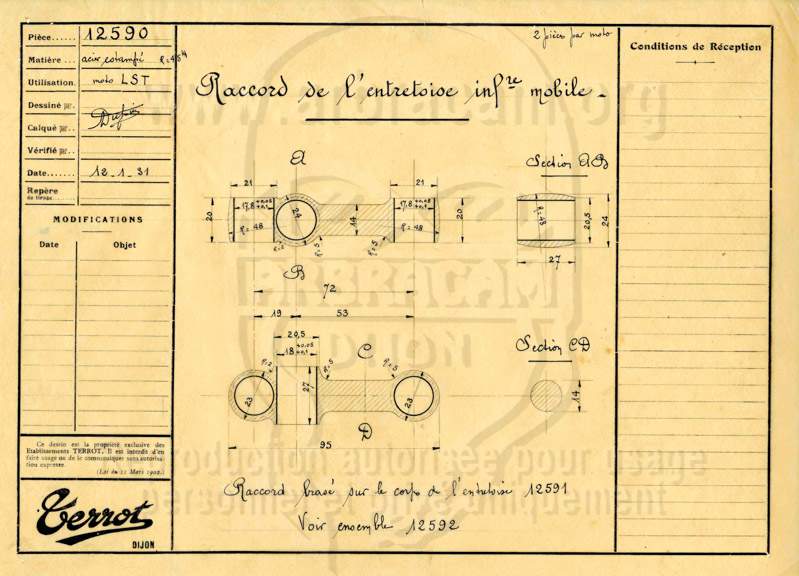 Pièce...... 12590
Matière ... acier estampé
Utilisation. moto LST
Dessiné par.
Calqué par..
Vérifié par..
Date....... 12_1_31
Repère
de tirage
MODIFICATIONS
Date Objet
Ce dessin est la propriété exclusive des
Etablissements TERROT. Il est interdit d'en
faire usage ou de le communiquer sans autorisa-
tion expresse.
(Loi du 11 Mars 1902.)
Terrot
DIJON
2 pièces par moto
Raccord de l'entretoise infre mobile_
A
21
21
20
17,8 +0,05 +0,1
R=48
24
14
17,8 +0,05 +0,1
R=48
20
R=2
R=5
R=5
B
72
19
53
20,5
18 +0,05 +0,1
C
R=2
R=5
R=5
23
27
23
D
95
Section AB
R=48
20,5
24
27
Section CD
14
Raccord brasé sur le corps de l'entretoise 12591
Voir ensemble 12592
Conditions de Réception
www.arbracam.org
ARBRACAM
DIJON
Reproduction autorisée pour usage
personnel et privé uniquement